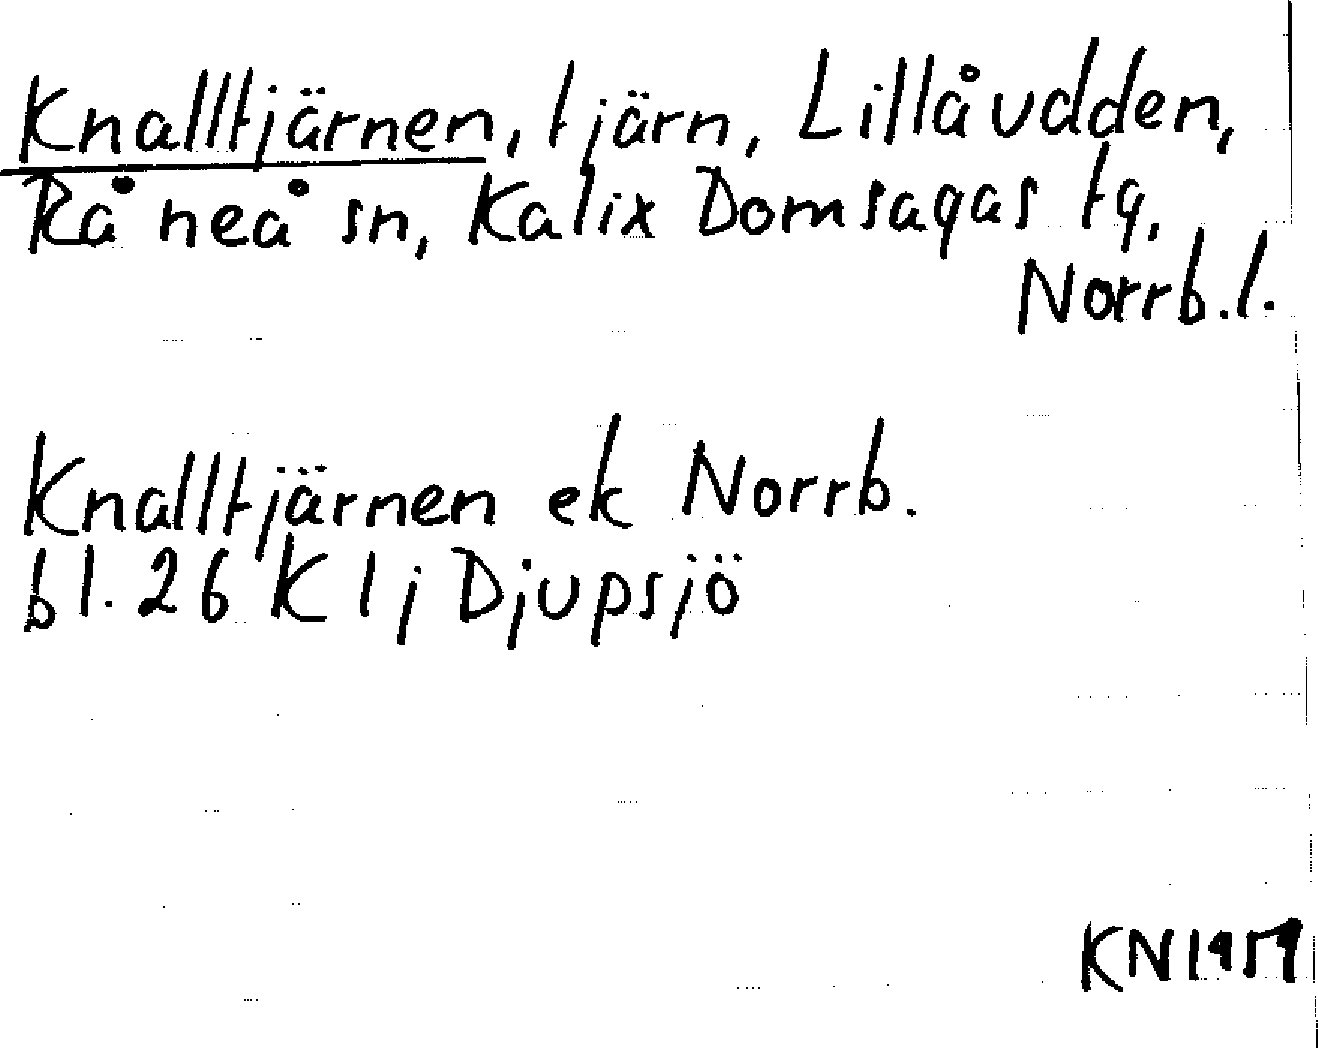 Knalltjärnen, tjärn, Lillåudden,
Råneå sn, Kalix Domsagas tg,
Norrb.l.
Knalltjärnen ek Norrb.
bl. 26 K 1j Djupsjö
KN 1959